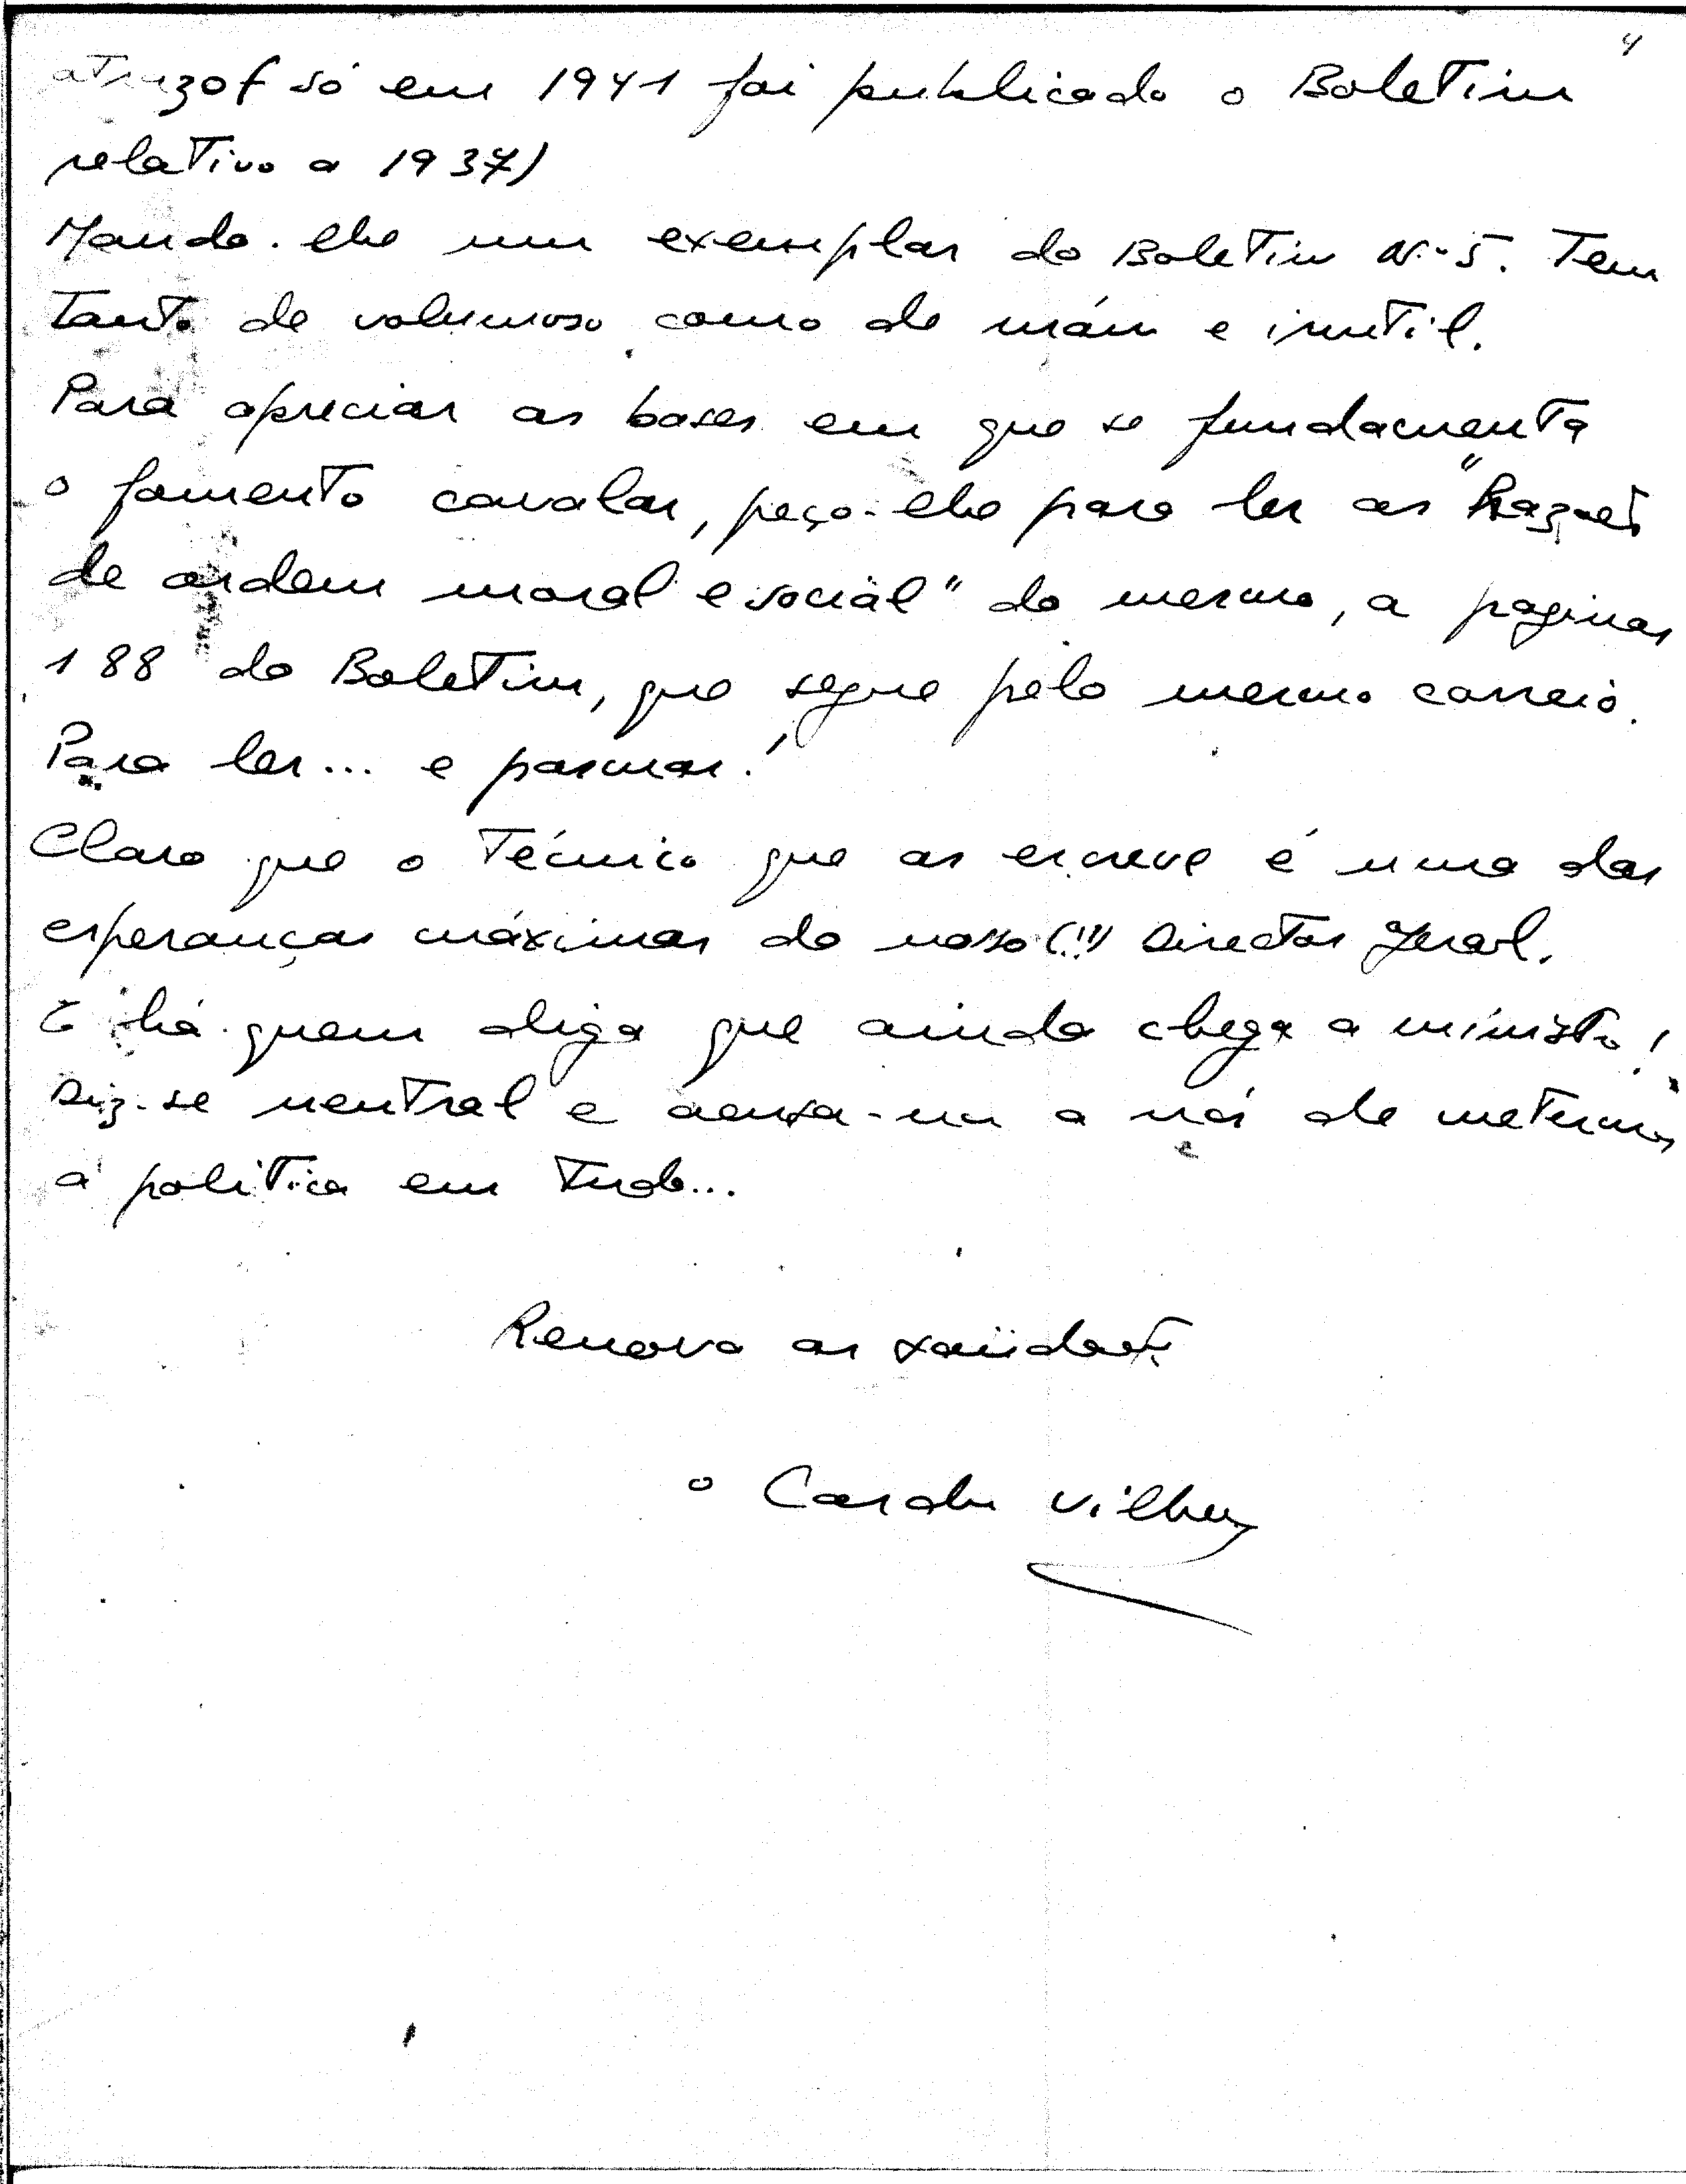 4
atrazo (só em 1941 foi publicado o Boletim
relativo a 1937)
Mando-lhe um exemplar do Boletim N.º 5. Tem
tanto de volumoso como de máu e inutil.
Para apreciar as bases em que se fundamenta
o fomento cavalar, peço-lhe para ler as "Razões
de ordem moral e social" do mesmo, a paginas
188 do Boletim, que segue pelo mesmo correio.
Para ler... e pasmar!
Claro que o Técnico que as escreve é uma das
esperanças máximas do nosso (!!!) Director Geral.
E há quem diga que ainda chega a ministro!
Diz-se neutral e acusa-nos a nós de metermos
a politica em tudo...
Renova as saüdações
o Cardoso Vilhena